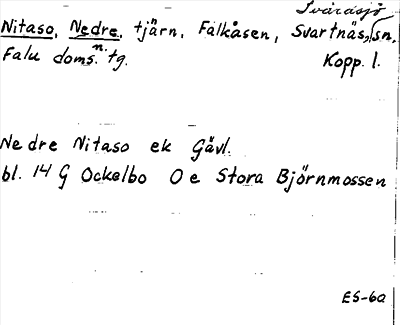 Svärdsjö
Nitaso, Nedre, tjärn, Falkåsen, Svartnäs, sn.
Falu doms. n. tg. Kopp. l.
Nedre Nitaso ek Gävl.
bl. 14 G Ockelbo O e Stora Björnmossen
ES-60